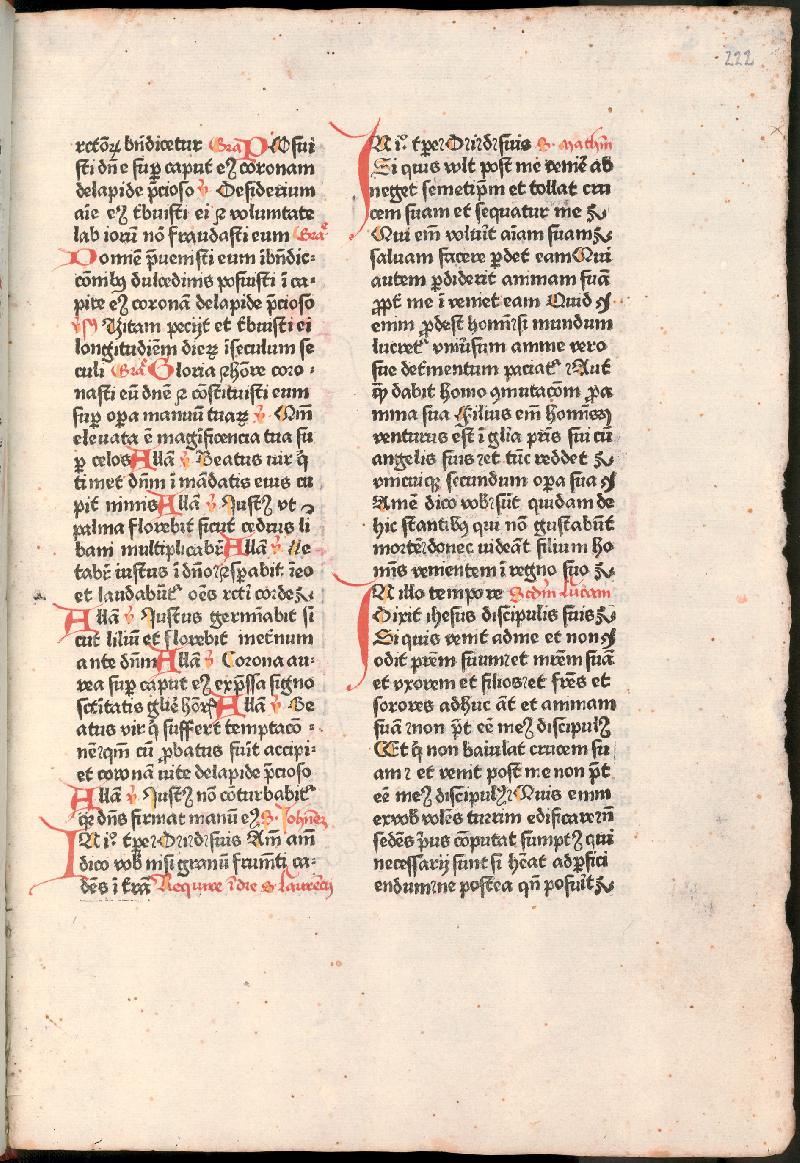 222
rctoꝝ bn̄dicetur Gra Posui
sti dn̄e sup̄ caput eiꝰ coronam
delapide p̄cioso ꝟ Desiderium
aīe eiꝰ t̄buisti ei ⁊ voluntate
lab ioru nō fraudasti eum Gra
Domiē p̄uenisti eum ī bn̄dic-
cōnibꝰ dulcedīnis posuisti ī ca-
pite eiꝰ coronā delapide p̄cioso
ꝟsꝰ Uitam pecijt et t̄buisti ei
longitudīem dieꝝ ī seculum se
culi Gra Gloria ⁊ hōre coro-
nasti eū dn̄e ⁊ cōstituisti eum
sup̄ opa manuū tuaꝝ ꝟ Qm̄
eleuata ē magnificencia tua su
ꝑ celos Allā ꝟ Beatus uir q̄
timet dn̄m ī mādatis eius cu
pit nimis Allā ꝟ Justꝰ vt
palma florebit sicut cedrus li
bani multiplicabr̄ Allā ꝟ Le
tabr̄ iustus ī dn̄o ⁊ sp̄abit ī eo
et laudabūt oēs rcti corde ⁊c
Allā ꝟ Justus germīabit si
cut liliū et florebit inet̄num
ante dn̄m Allā ꝟ Corona au-
rea sup̄ caput eiꝰ exp̄ssa signo
sctītatis glīe hōrꝭ Allā ꝟ Be
atus vir q̄ suffert temptacō-
nē qm̄ cū ꝓbatus fuit accipi-
et coronā uite delapide p̄cioso
Allā ꝟ Justꝰ nō cōturbabit
qꝛ dn̄s firmat manū eiꝰ S. Johnēꝫ
IN i° tp̄e Dī ih̄ dī suis Am̄ am̄
dico vob nisi granū frumti ca-
dēs ī trā Require ī die S laurēcij
IN i° tp̄e Dī ih̄ dī suis S. Mathm̄
Si quis vult post me venire ab
neget semetip̄m et tollat cru
cem suam et sequatur me ⁊c
Qui em̄ voluīt aīam suam ⁊c
saluam facere ꝑdet eam Qui
autem ꝑdiderit animam suā
ꝓpt me ī veniet eam Quid ꝯ
enim ꝓdest homīsi mundum
lucret vniūsum anime vero
sue det̄mentum paciat Aut
q̄ dabit homo ꝯmutacōm ꝓ a
nima sua Filius em̄ homīsꝰ
venturus est ī gl̄ia pr̄is sui cū
angelis suis et tūc reddet ⁊c
vnicuiqꝫ secundum opa sua ꝯ
Amē dico vob sūt quidam de
hic stantibꝰ qui nō gustabūt
mortē donec uideāt filium ho
mīs venientem ī regno suo ⁊c
IN illo tempore Scdm̄ lucam
Dixit ihesus discipulis suis ⁊c
Si quis venit adme et non ꝯ
odit pr̄em suum et mr̄em suā
et vxorem et filios et fr̄es et
sorores adhuc āt et animam
suā non pt̄ eē meꝰ discipulꝰ
Et q̄ non baiulat crucem su
am et venit post me non pt̄
eē meꝰ discipulꝰ Quis enim
exvob volēs turrim edificare nō
sedēs p̄us cōputat sumptꝰ qui
necessarij sunt si hēat adꝑfici
endum ne postea qn̄ posuīt ⁊c